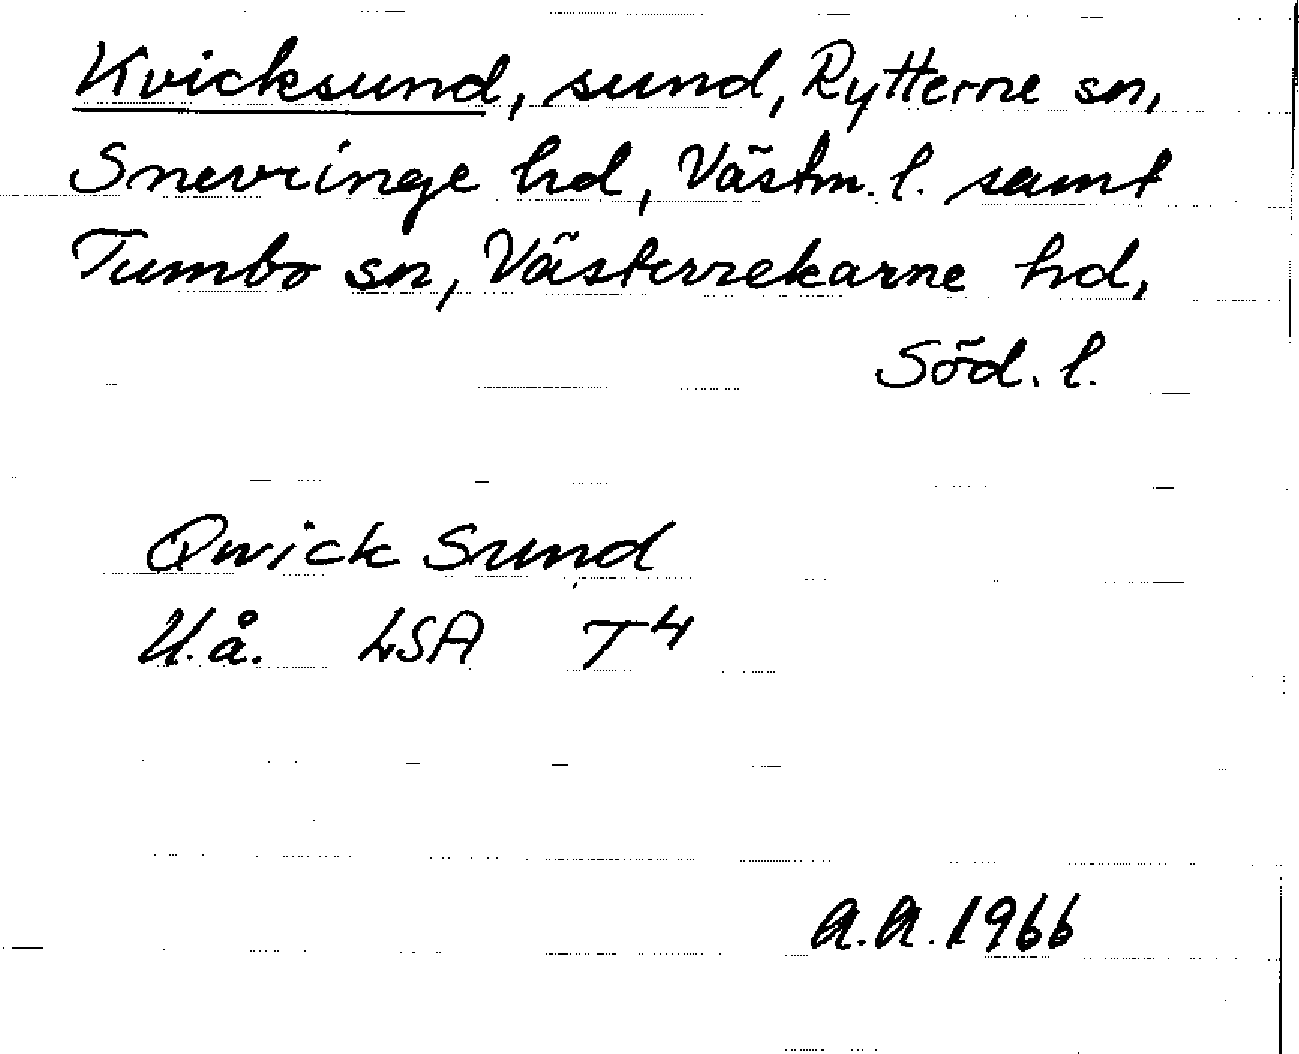 Kvicksund, sund, Rytterne sn,
Snevringe hd, Västm. l. samt
Tumbo sn, Västerrekarne hd,
Söd. l.
Qwick Sund
U.å. LSA T4
A.A. 1966